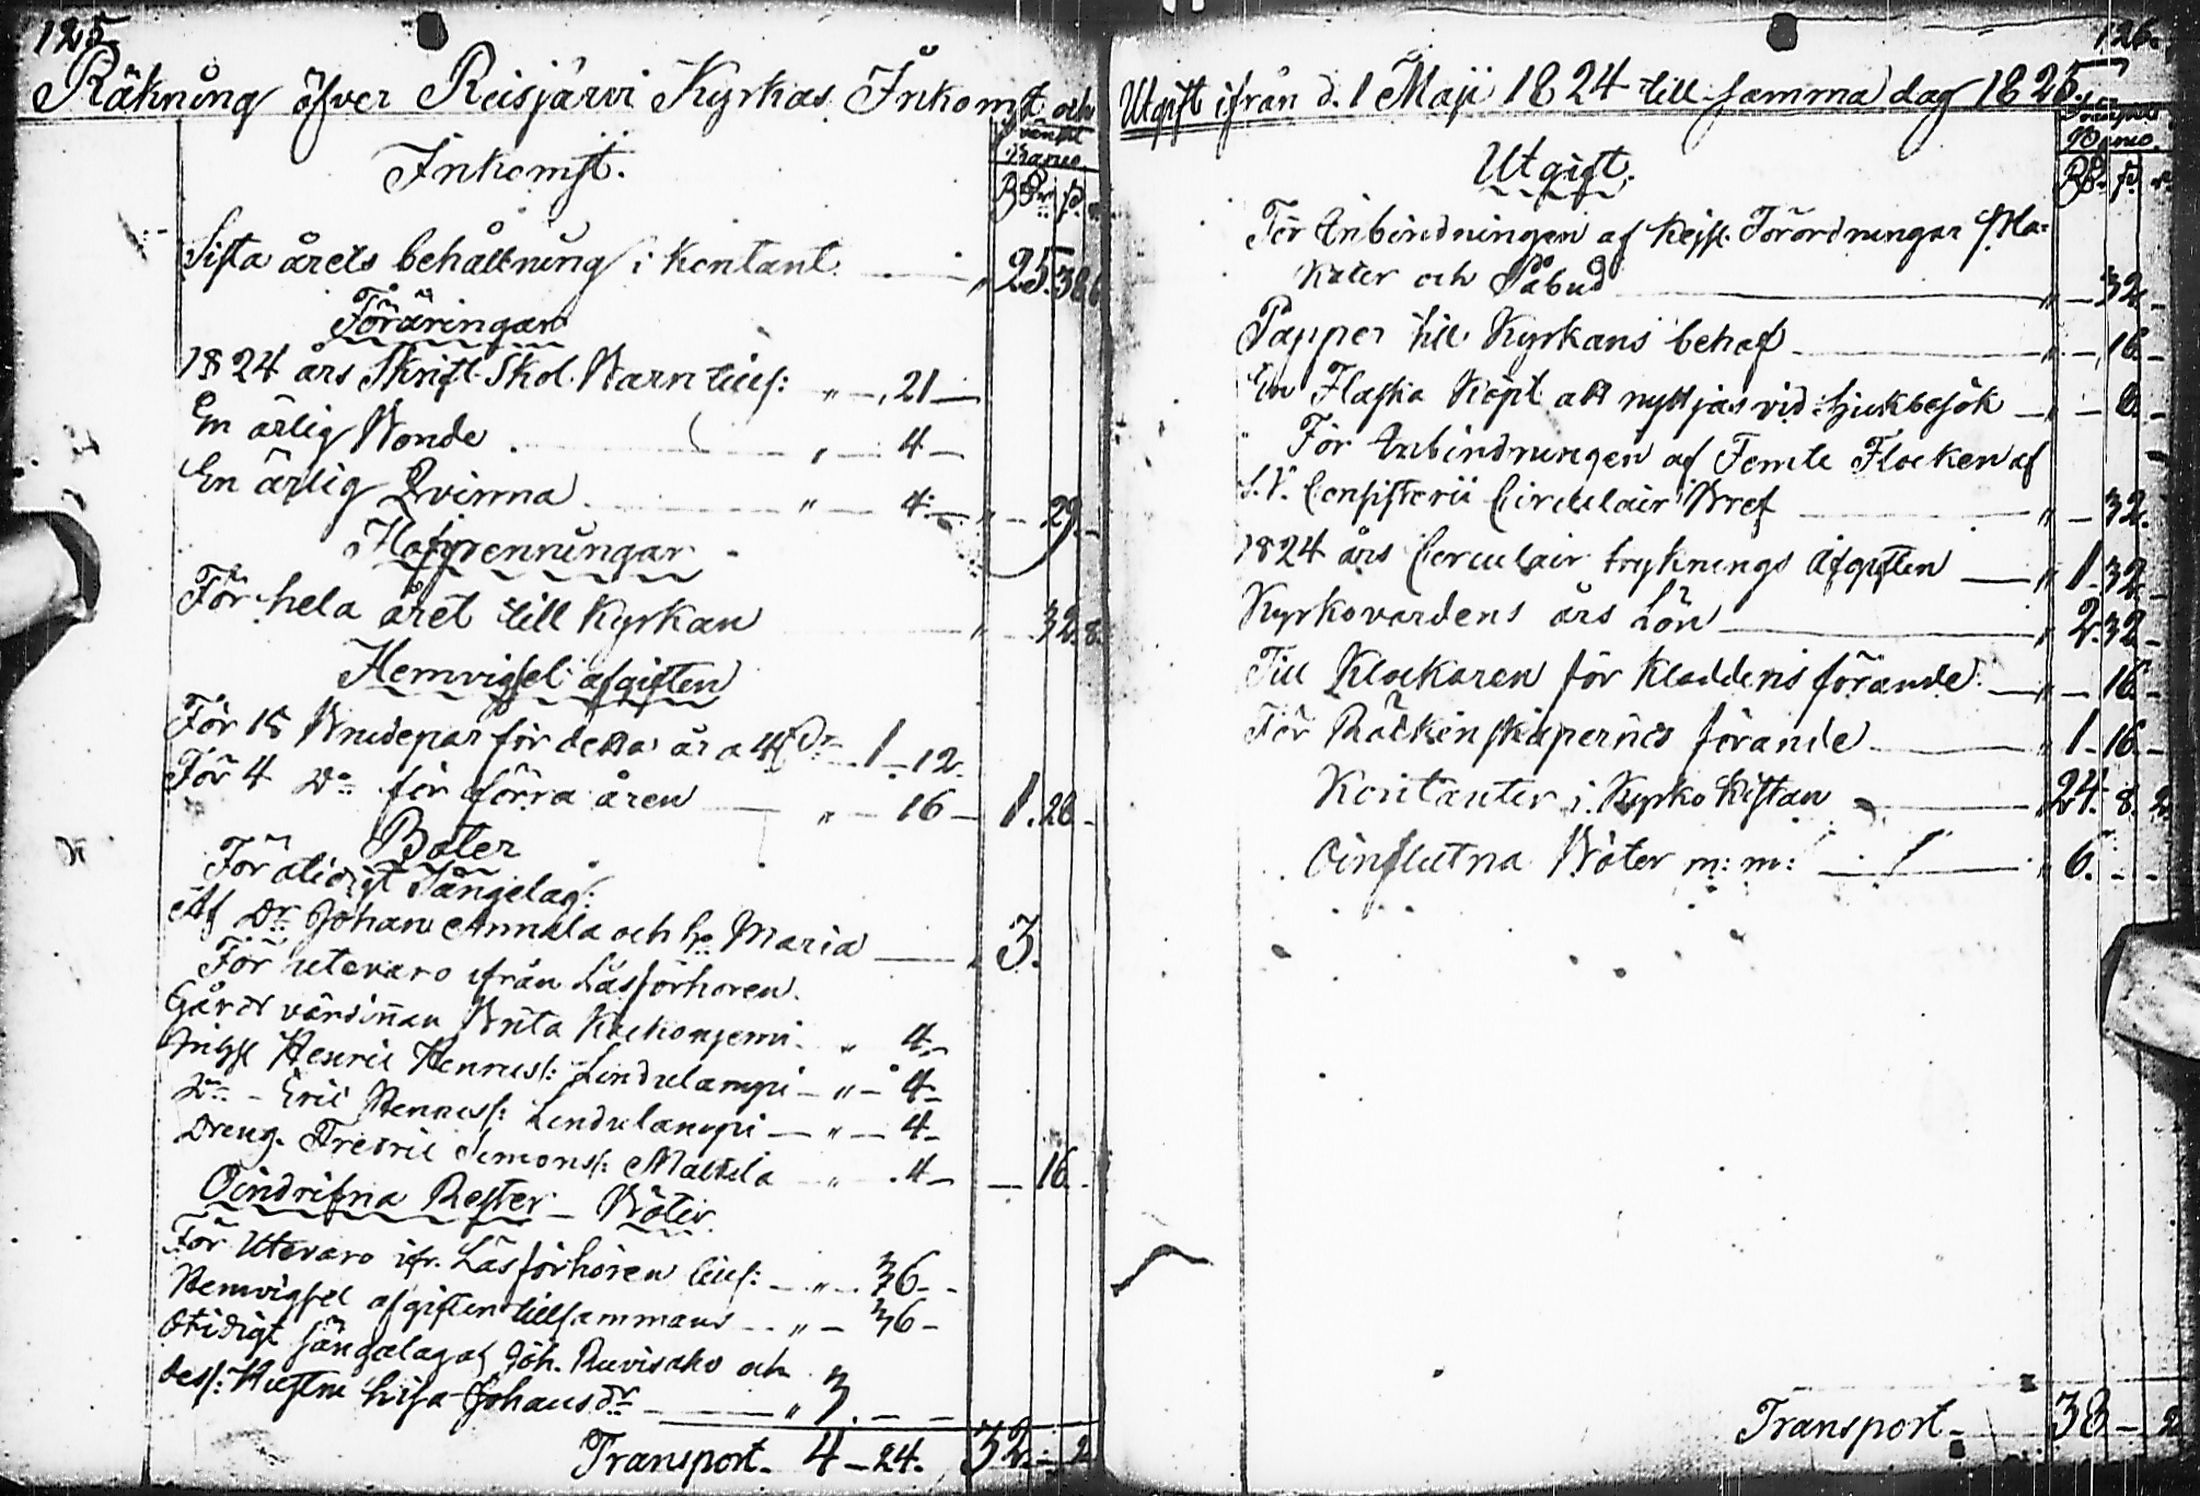 125.
Räkning öfver Reisjärvi Kyrkas Inkomst och
Inkomst.
Banco
Sista årets behållning i Kontant " 25. 38. 6
Föräringar
1824 års Skrift Skol. Barn tills: " — 21 —
En ärlig Bonde " — 4 —
En ärlig Qvinna " — 4. — " — 29. —
Håfpenningar
För hela året till Kyrkan " 32. 8.
Hemvigsel afgiften
För 15 Brudepar för detta år a 4 1 — 12.
För 4 D:o för förra åren " — 16 — 1. 28 —
Böter
För otidigt Sängelag:
Af Johan Annala och h. Maria " 3.
För utevaro ifrån Läsförhören.
Gårds värdinnan Brita " 4. —
Henric Henricss: Lindulampi — " — 4 —
D:o — Eric Henricss: Lindulampi — " — 4 —
Dreng. Fredric Simonss: Mattila " . 4 — — 16. —
Oindrifna Rester — Böter
För Utevaro ifr. Läsförhören tills: — " — 36 —
Hemvigsel afgiften tillsammans — " — 36 —
Otidigt sängelag af Joh. och
dess: Hustru Lisa Johansdr — " 3. — —
Transport — 4 — 24. 32. — 2
126.
Utgift ifrån d. 1 Maji 1824 till samma dag 1825.
Banco.
Utgift.
För Inbindningen af Kejs. Förordningar Pla-
kater och Påbud " — 32 —
Papper till Kyrkans behof " — 16. —
En Flaska Köpt att nyttjas vid Sjukbesök — " — 8. —
För Inbindningen af Femte Flocken af
S.V. Consistorii Circulair Bref " — 32.
1824 års Circulair tryknings Afgiften — " 1. 32 —
Kyrkovärdens års Lön " 2. 32 —
Till Klockaren för Kladdens förande — " — 16 —
För Räckenskapernes förande " 1 — 16. —
Kontanter i Kyrko Kistan 24. 8. 2
Oinflutna Böter m: m: " 6. — —
Transport — 38 — 2